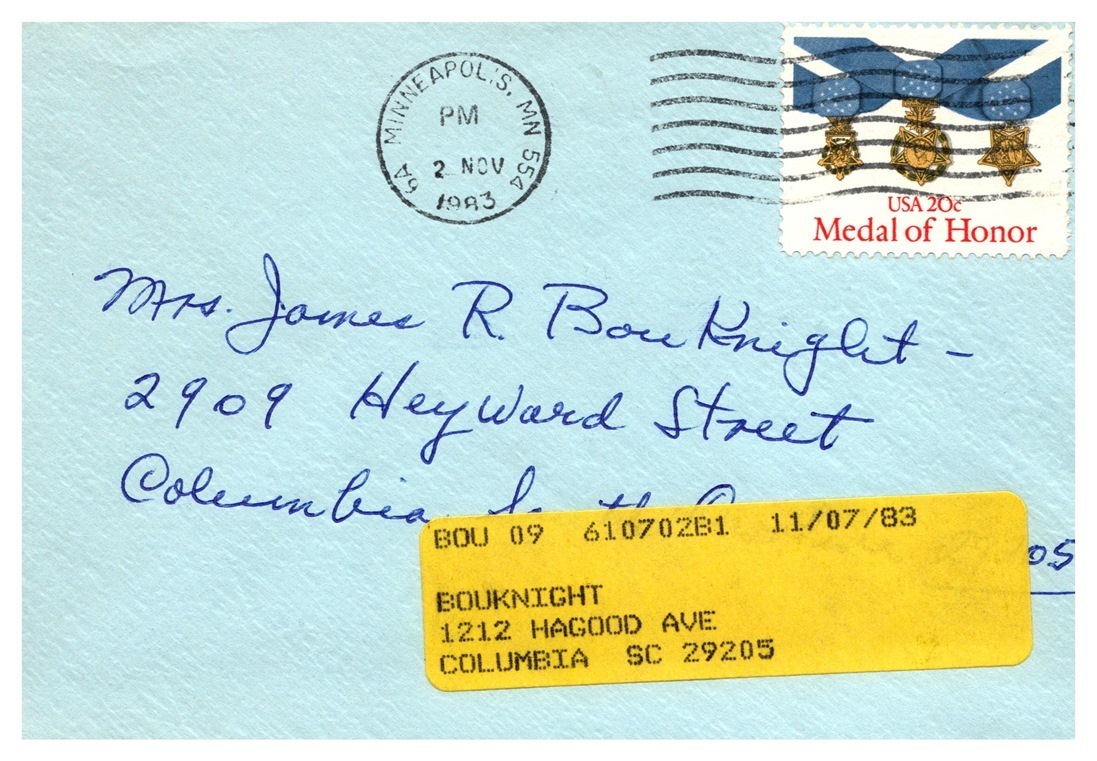 6A MINNEAPOLIS, MN 554
PM
2 NOV
1983
USA 20c
Medal of Honor
Mrs. James R. BouKnight –
2909 Heyward Street
Columbia, South
05
BOU 09 610702B1 11/07/83
BOUKNIGHT
1212 HAGOOD AVE
COLUMBIA SC 29205